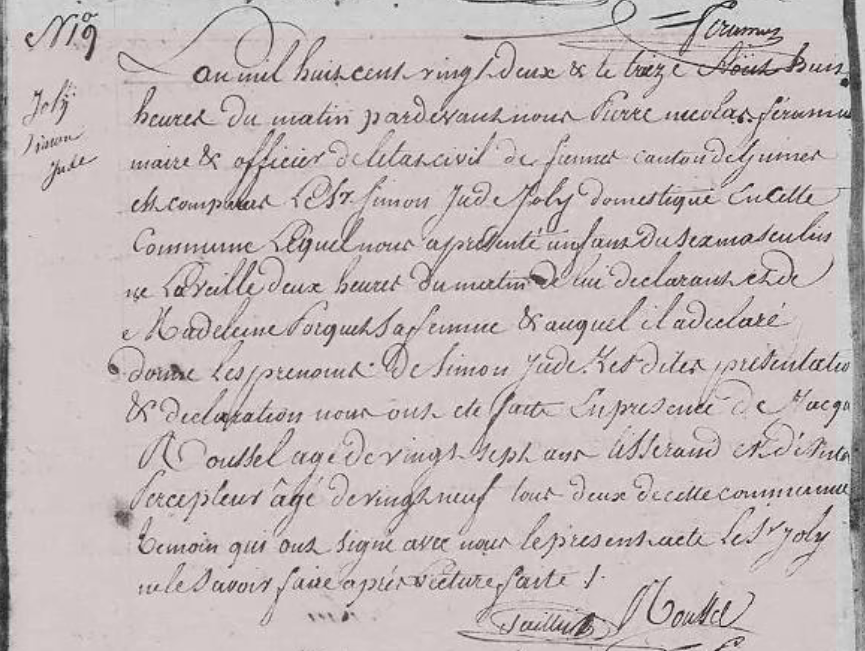 N.º 9
Joly
Simon
Jude
Lan mil huit cent vingt deux & le treize Août huit
heures du matin pardevant nous Pierre nicolas
maire & officier de letat civil de fiennes canton de Guines
est comparu Le Sr. Simon Jude Joly domestique En cette
Commune Lequel nous a présenté un fant du sex masculin
né La veille deux heures du matin de lui declarant et de
Madeleine Porquet Sa femme & auquel il a declaré
donné Les prenoms de Simon Jude. Les dites présentatio
& declaration nous ont été faite En presence de Jacqu
Roussel agé de vingt sept ans tisserand et
Percepteur âgé de vingt neuf tous deux de cette commune
temoin qui ont signé avec nous le present acte Le Sr Joly
ne le Savoir faire après Lecture faite /.
Roussel